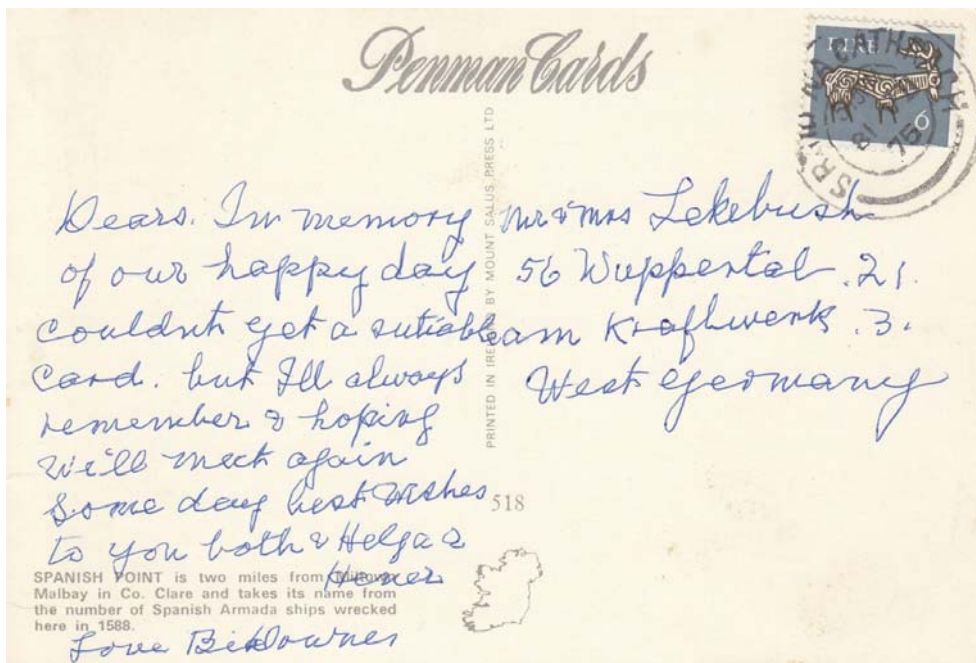 Penman Cards
EIRE
6
SRÁID NA CATHRACH
81
75
PRINTED IN IRELAND BY MOUNT SALUS PRESS LTD
Dears. In memory
of our happy day
couldnt get a sutiable
card. but I'll always
remember & hoping
We'll meet again
Some day best wishes
to you both & Helga &
Love
Mr & Mrs Lekebush
56 Wuppertal .21.
am Kraftwerk .3.
West Germany
518
SPANISH POINT is two miles from Miltown
Malbay in Co. Clare and takes its name from
the number of Spanish Armada ships wrecked
here in 1588.